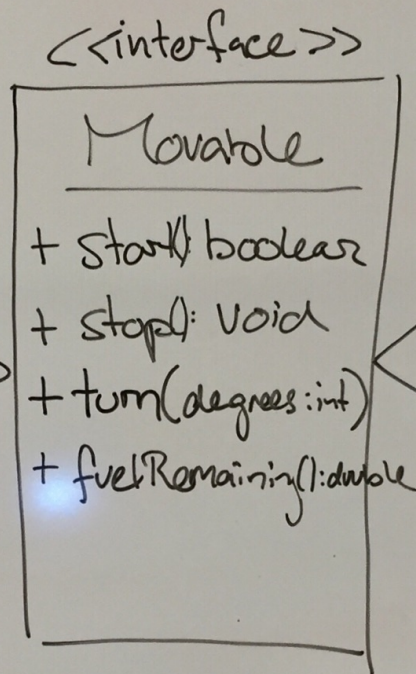 <<interface>>
Movable
+ start(): boolean
+ stop(): void
+ turn(degrees:int)
+ fuelRemaining():double